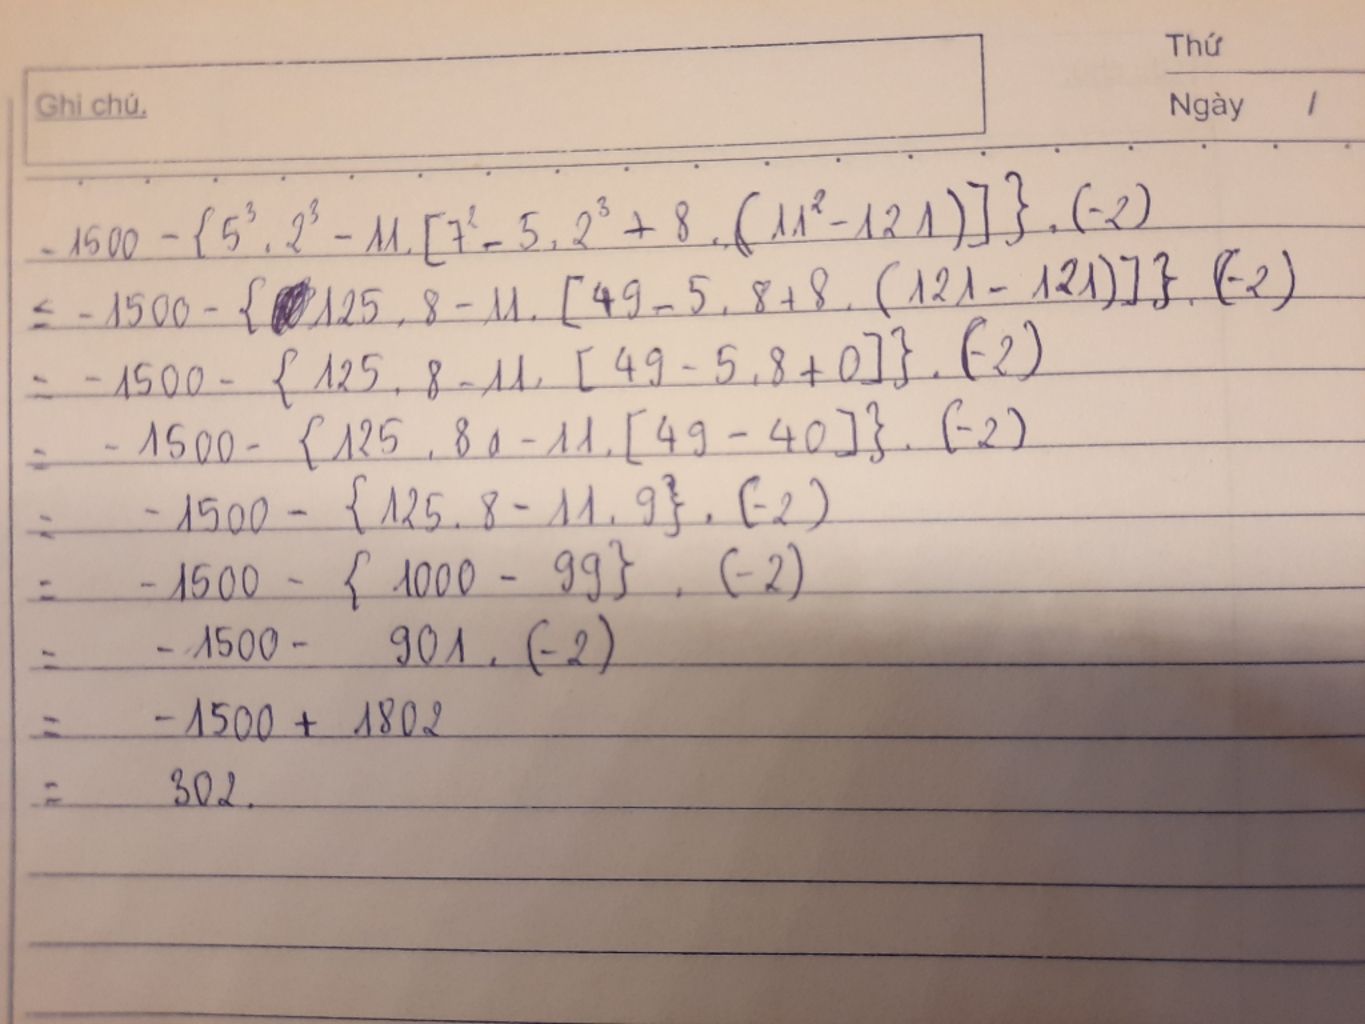 Thứ
Ghi chú.
Ngày /
-1500 - {5³ . 2³ - 11. [7² - 5 . 2³ + 8 . (11² - 121)]} . (-2)
= -1500 - { 125 . 8 - 11. [49 - 5 . 8 + 8 . (121 - 121)]} . (-2)
= -1500 - { 125 . 8 - 11. [49 - 5 . 8 + 0]} . (-2)
= -1500 - {125 . 8 - 11. [49 - 40]} . (-2)
= -1500 - {125 . 8 - 11 . 9} . (-2)
= -1500 - { 1000 - 99} . (-2)
= -1500 - 901 . (-2)
= -1500 + 1802
= 302.